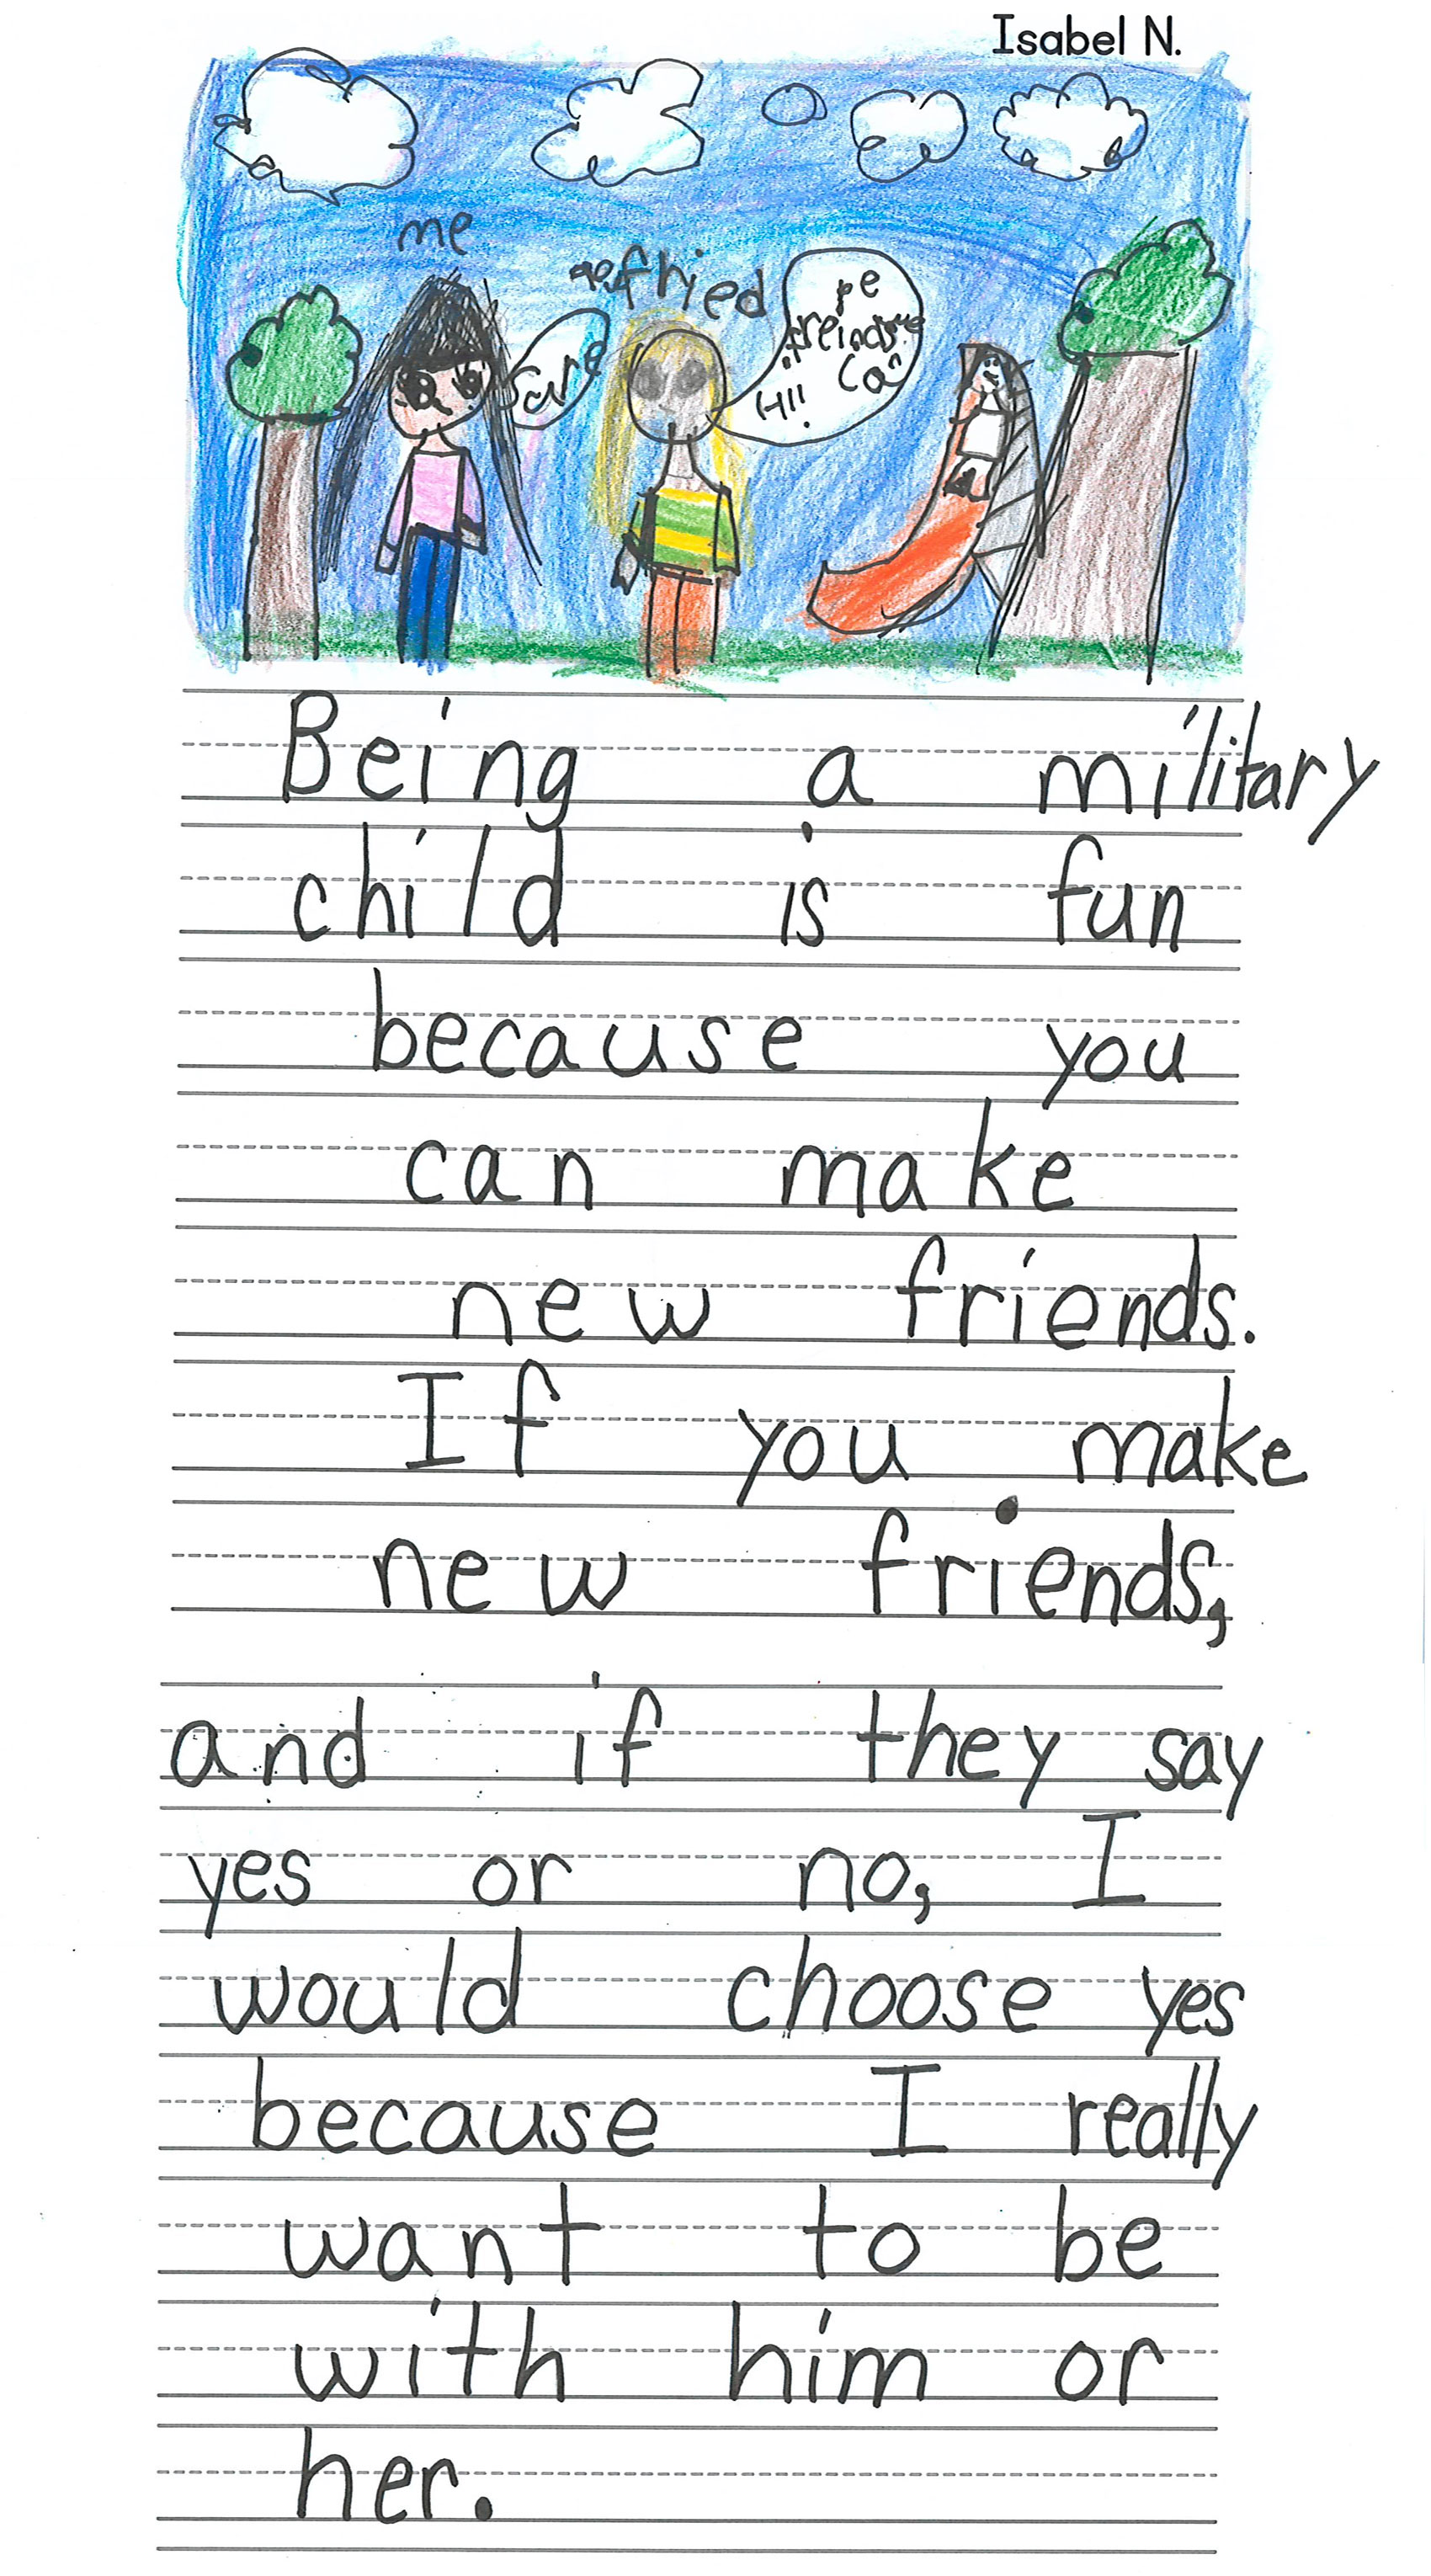 Isabel N.
me
fried
sure
HI!
Being a military
child is fun
because you
can make
new friends.
If you make
new friends,
and if they say
yes or no, I
would choose yes
because I really
want to be
with him or
her.